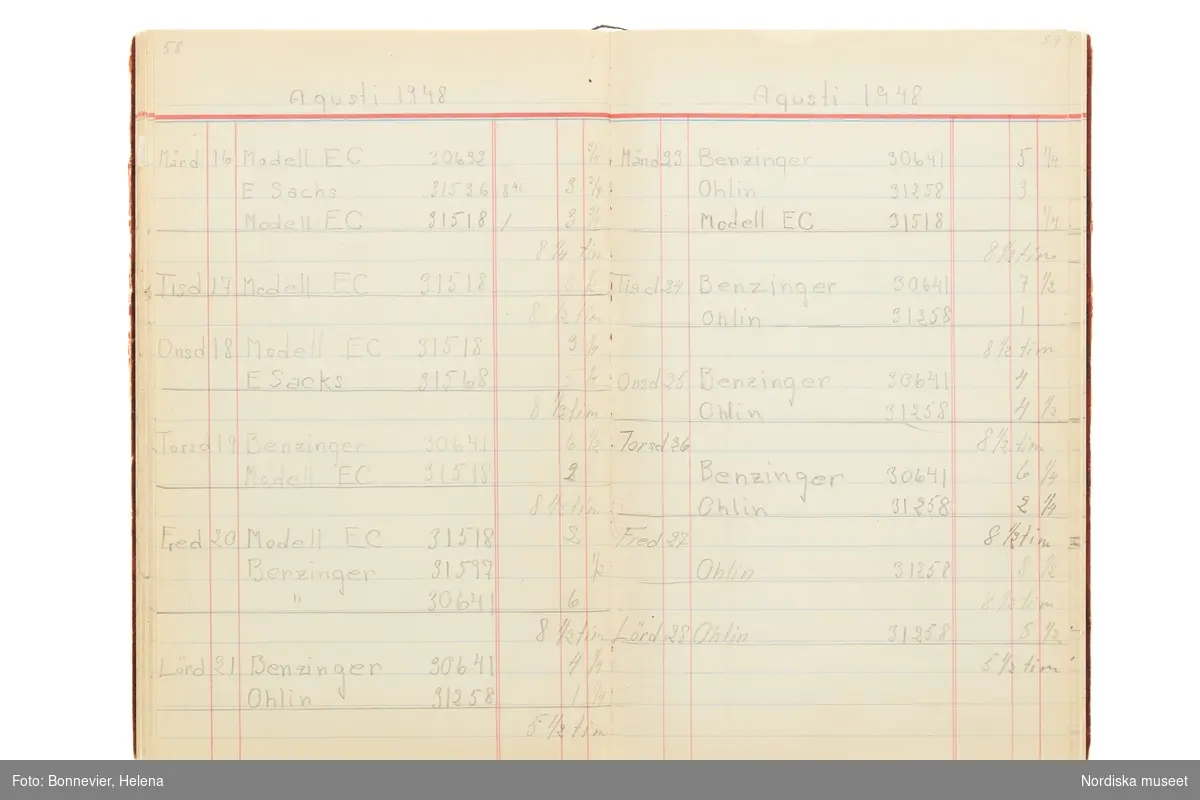 58
Agusti 1948
Månd 16 Modell EC 30692
E Sachs 31536 3
Modell EC 31518 / 3
8 ½ tim
Tisd 17 Modell EC 31518
8 ½ tim
Onsd 18 Modell EC 31518 3
E Sacks 31568
8 ½ tim
Torsd 19 Benzinger 30641 6 ½
Modell EC 31518 2
8 ½ tim
Fred 20 Modell EC 31518 2
Benzinger 31597 ½
" 30641 6
8 ½ tim
Lörd 21 Benzinger 30641 4
Ohlin 31258 1
5 ½ tim
59
Agusti 1948
Månd 23 Benzinger 30641 5 ¼
Ohlin 31258 3
Modell EC 31518 ¼
8 ½ tim
Tisd 24 Benzinger 30641 7 ½
Ohlin 31258 1
8 ½ tim
Onsd 25 Benzinger 30641 4
Ohlin 31258 4 ½
8 ½ tim
Torsd 26
Benzinger 30641 6 ¼
Ohlin 31258 2 ¼
8 ½ tim
Fred 27
Ohlin 31258 8 ½
8 ½ tim
Lörd 28 Ohlin 31258 5 ½
5 ½ tim
Foto: Bonnevier, Helena
Nordiska museet